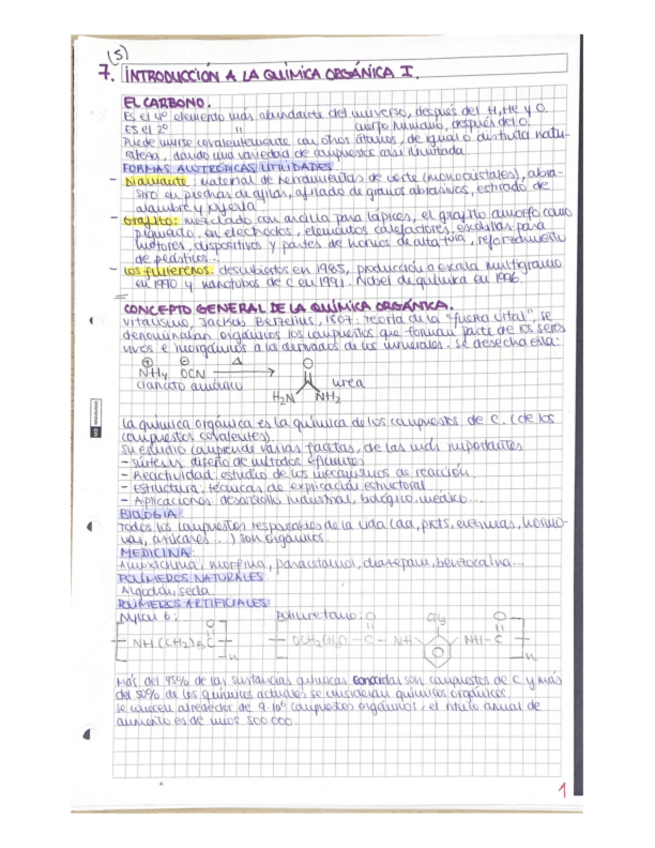 (5)
7. INTRODUCCIÓN A LA QUÍMICA ORGÁNICA I.
EL CARBONO.
Es el 4º elemento más abundante del universo, después del H, He y O.
Es el 2º " cuerpo humano, después del O.
Puede unirse covalentemente con otros átomos, de igual o distinta natu-
raleza, dando una variedad de compuestos casi ilimitada
FORMAS ALOTRÓPICAS, UTILIDADES
- Diamante: material de herramientas de corte (monocristales), abra-
sivo en piedras de afilar, afilado de granos abrasivos, estirado de
alambre y joyería
- Grafito: mezclado con arcilla para lápices, el grafito amorfo como
pigmento, en electrodos, elementos calefactores, escobillas para
motores, dispositivos y partes de hornos de alta tª, reforzamiento
de plásticos...
- Los fullerenos: descubiertos en 1985, producción a escala multigramo
en 1990 y nanotubos de C en 1991. Nobel de química en 1996.
CONCEPTO GENERAL DE LA QUÍMICA ORGÁNICA.
Vitalismo, Jackos Berzelius, 1807: teoría de la "fuerza vital", se
denominaban orgánicos los compuestos que forman parte de los seres
vivos e inorgánicos a los derivados de los minerales. Se desecha esta:
⊕ ⊖ Δ O
NH4 OCN
cianato amónico urea
H2N NH2
La química orgánica es la química de los compuestos de C. (de los
compuestos covalentes)
Su estudio comprende varias facetas, de las más importantes
- Síntesis: diseño de métodos eficientes
- Reactividad: estudio de los mecanismos de reacción
- Estructura: técnicas de explicación estructural
- Aplicaciones: desarrollo industrial, biológico, médico...
BIOLOGÍA:
Todos los compuestos responsables de la vida (aa, prots, enzimas, hormo-
nas, azúcares...) son orgánicos
MEDICINA:
Amoxicilina, morfina, paracetamol, diazepam, benzocaína...
POLÍMEROS NATURALES
Algodón, seda
POLÍMEROS ARTIFICIALES
Nylon 6: Poliuretano: O CH3 O
O
NH (CH2)5 C n
C - NH NH - C n
Más del 95% de las sustancias químicas conocidas son compuestos de C y más
del 50% de los químicos actuales se consideran químicos orgánicos.
Se conocen alrededor de 9·10⁶ compuestos orgánicos, el ritmo anual de
aumento es de unos 500 000.
1